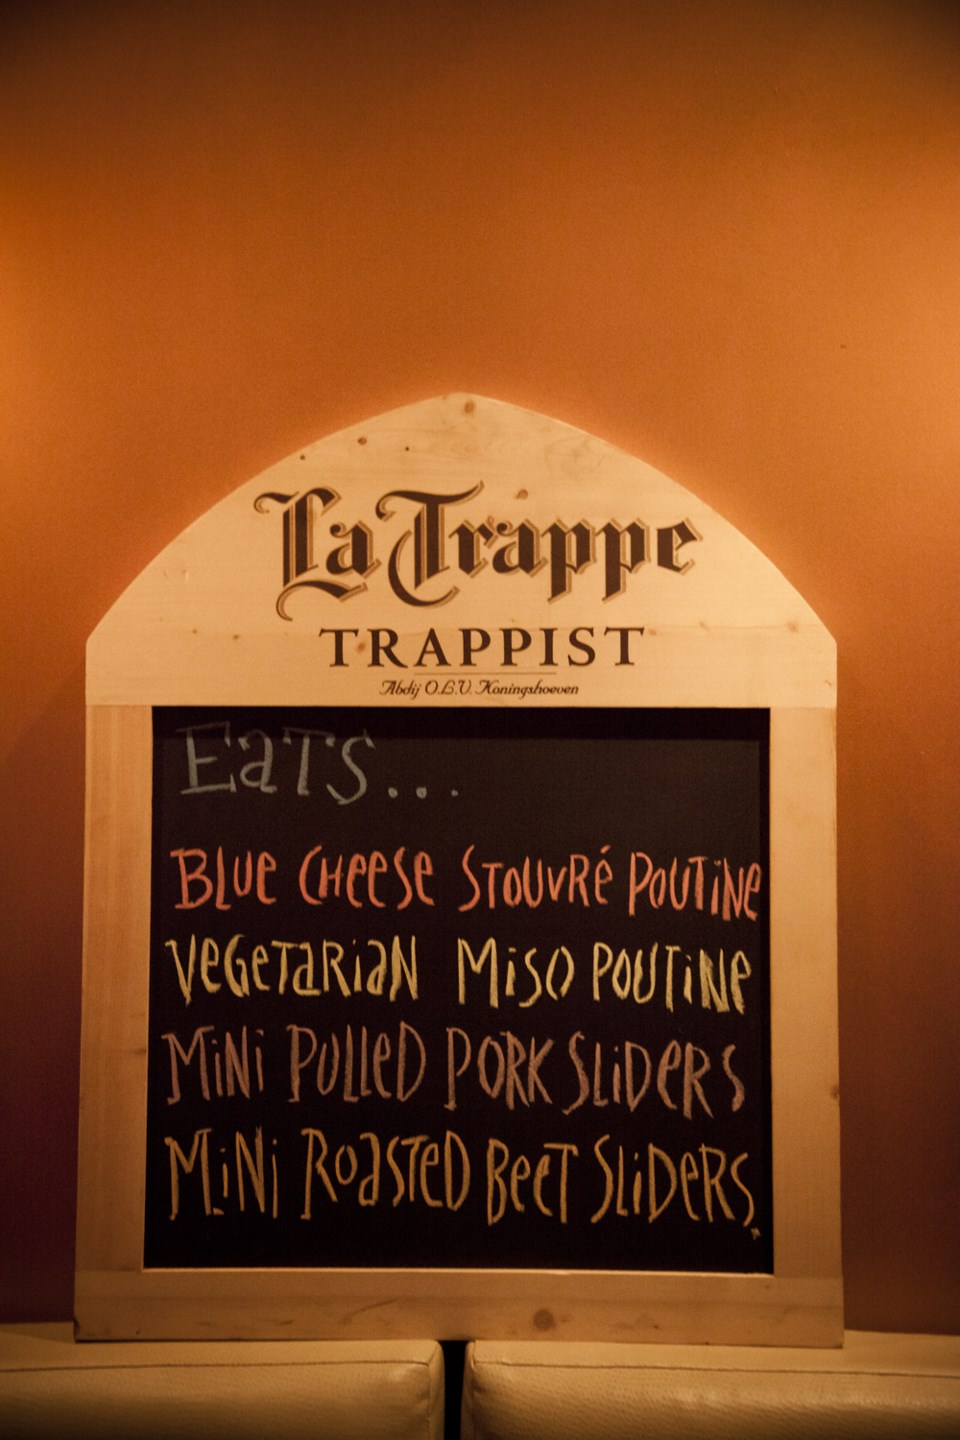 La Trappe
TRAPPIST
Abdij O.L.V. Koningshoeven
Eats...
BLUE CHEESE STOUVRÉ POUTINE
VEGETARIAN MISO POUTINE
MINI PULLED PORK SLIDERS
MINI ROASTED BEET SLIDERS.